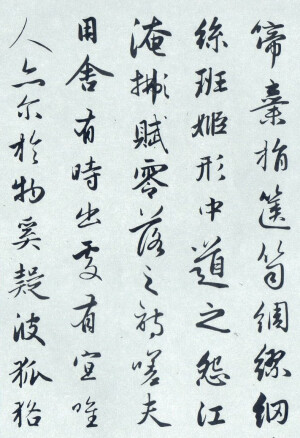 棄捐篋笥綢繆網
絲班姬形中道之怨江
淹擬賦零落之詩嗟夫
用舍有時出處有宜唯
人亦尔於物奚疑彼狐狢